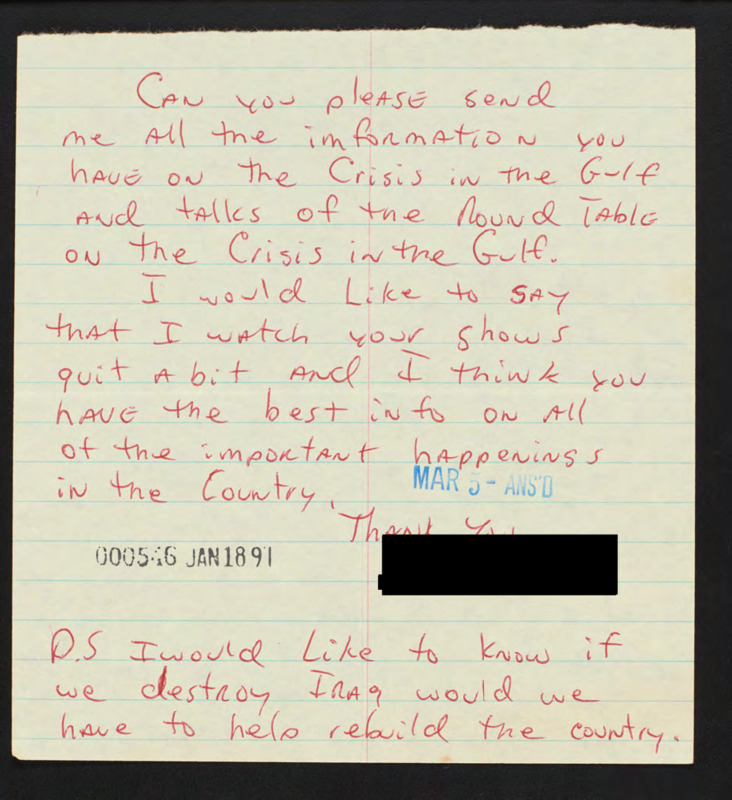 CAN you pleASE send
me All the imformATION you
HAVE ON the Crisis in the Gulf
ANd tAlks of the Round TABlE
ON the Crisis in the Gulf.
I would Like to SAY
thAt I wAtch your shows
quit A bit ANd I think you
HAVE the best info ON All
of the importANt hAppenings
in the Country.
MAR 5- ANS'D
ThANk You
000546 JAN 18 91
P.S I would Like to KNOW if
we destroy IRAq would we
hAve to help rebuild the country.